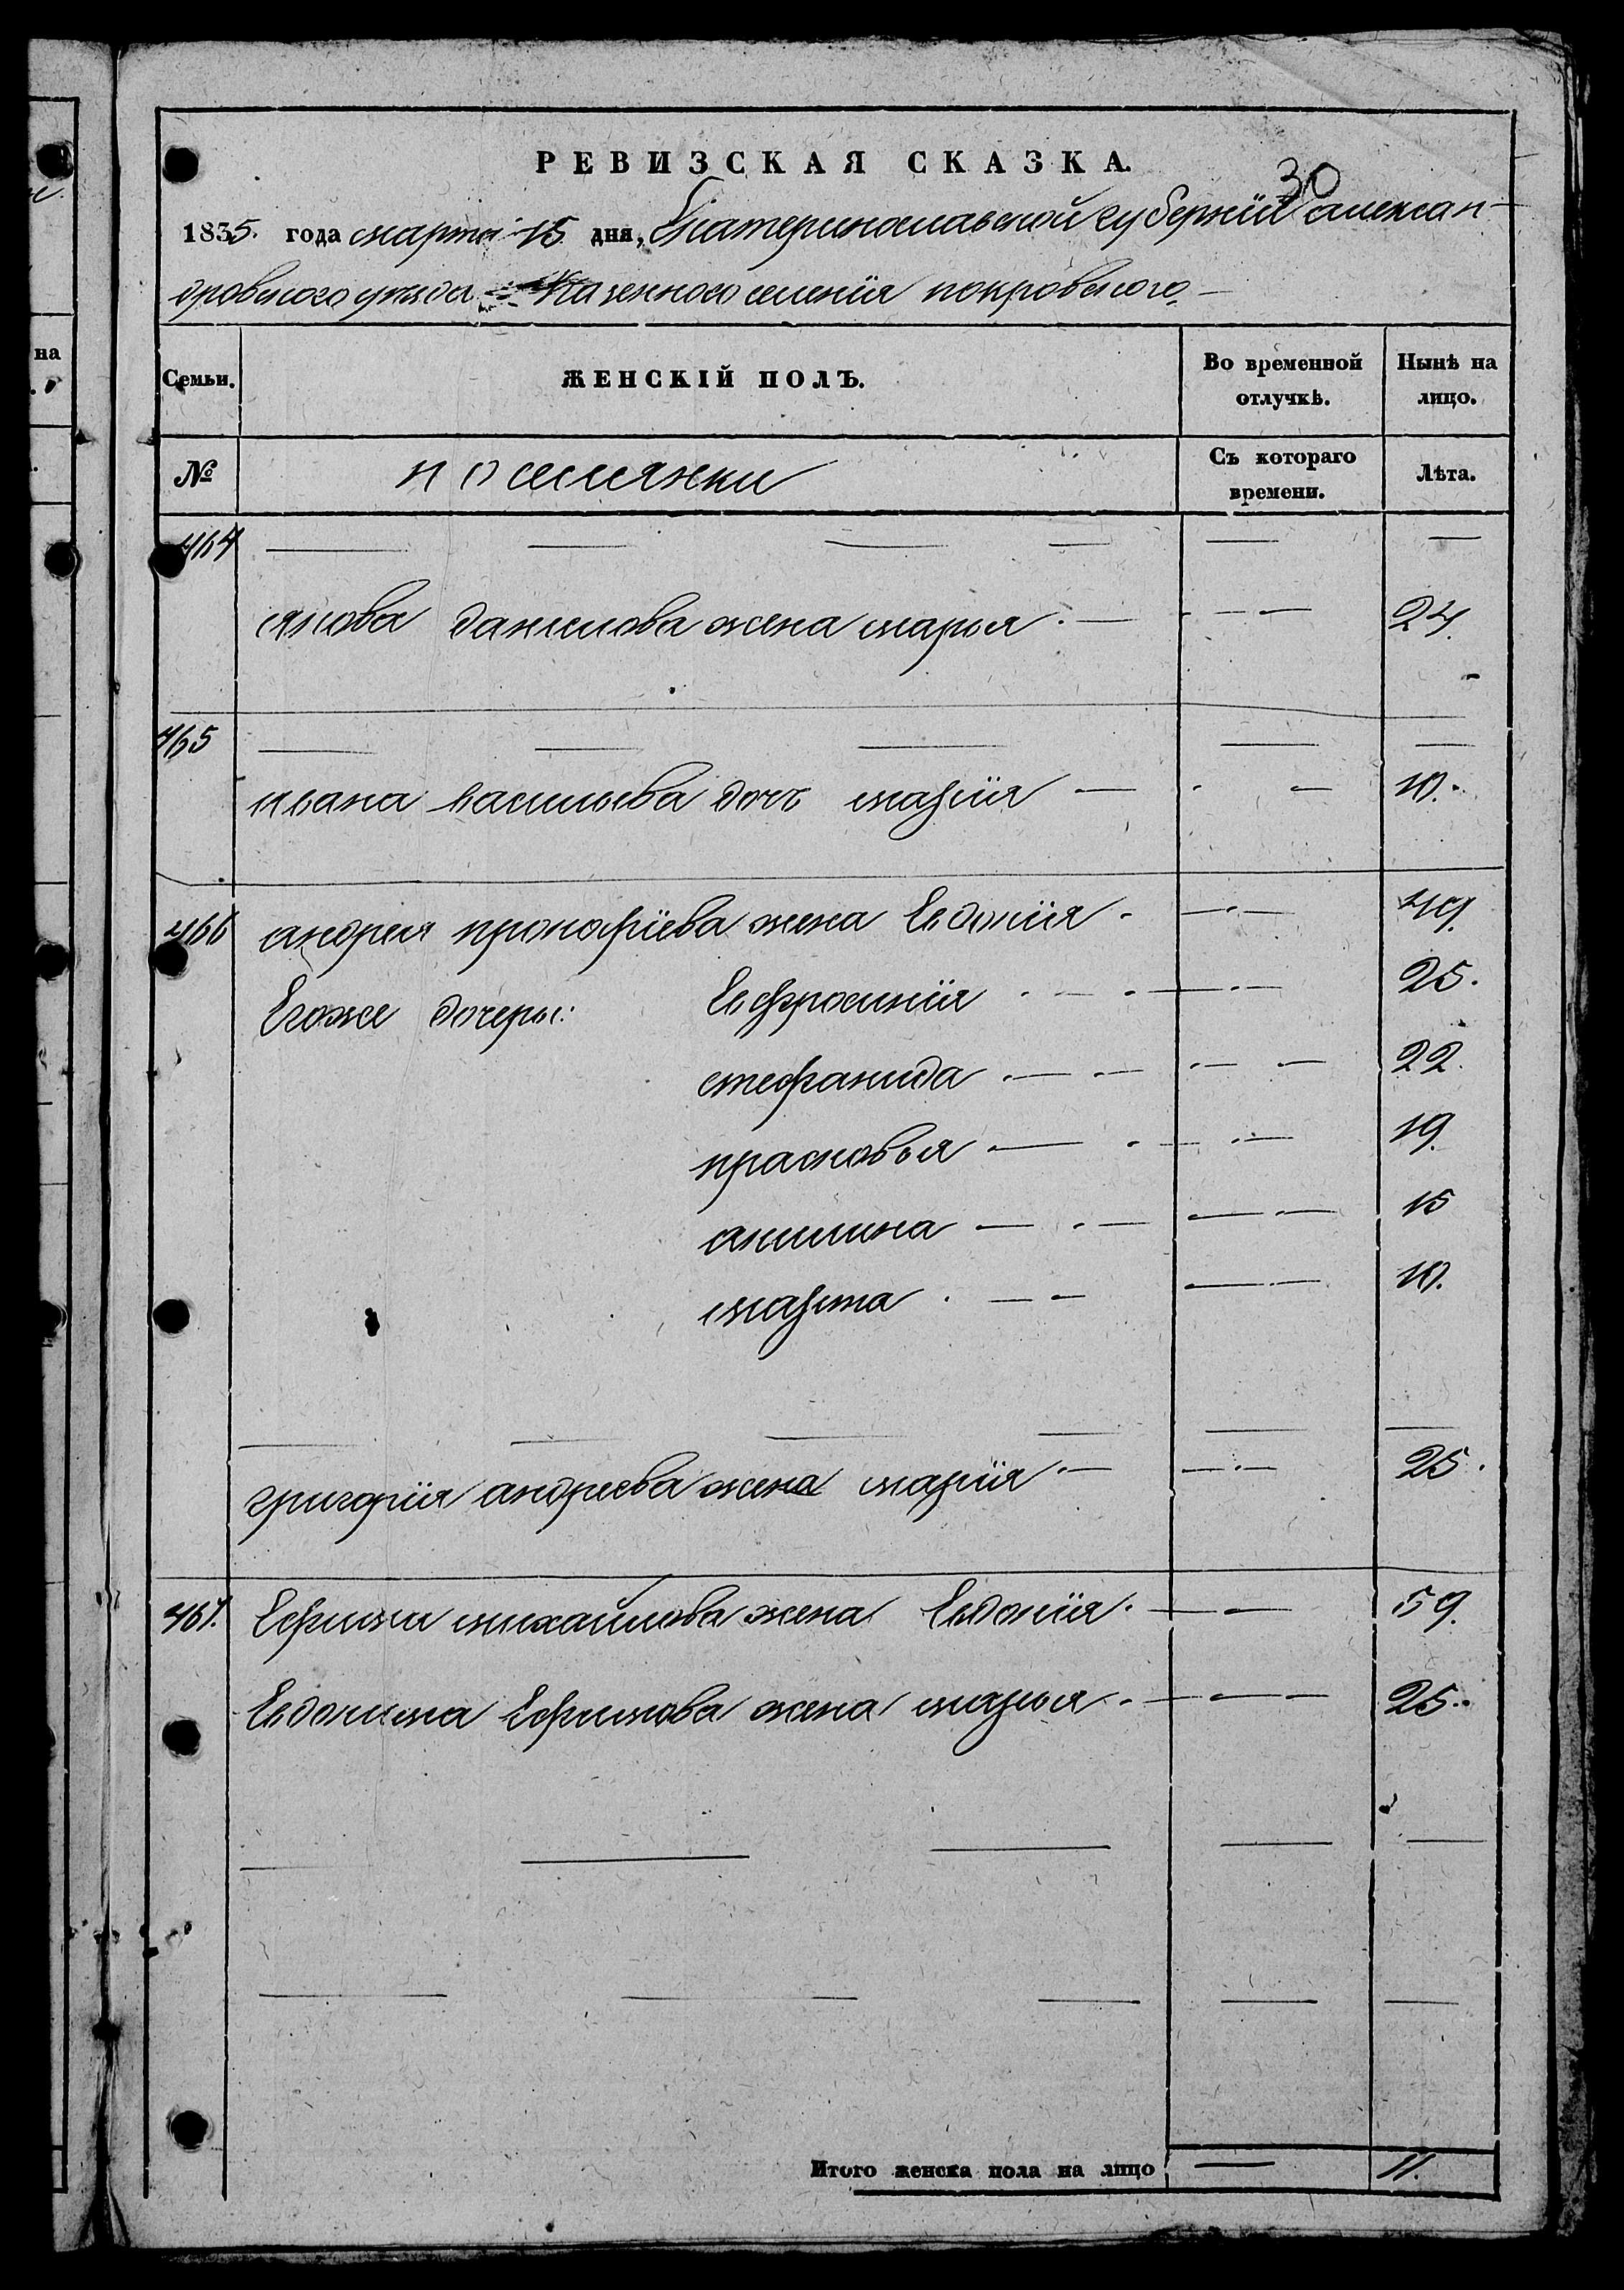 РЕВИЗСКАЯ СКАЗКА.
30
1835. года марта 15 дня, Екатеринославской губернии алексан-
дровского уезда Казенного селения покровского
на
Семьи.
ЖЕНСКІЙ ПОЛЪ.
Во временной отлучкѣ.
Нынѣ на лицо.
№
поселянки
Съ котораго времени.
Лѣта.
464
якова данилова жена марья 24.
465
ивана васильева дочъ марія 10.
466 андрея прокофіева жена Евдокія 49.
Егоже дочеры: Евфросинія 25.
стефанида 22.
прасковья 19.
акилина 15
марта 10.
григорія андреева жена марія 25.
467. Ефима михайлова жена Евдокія 59.
Евдокима Ефимова жена марья 25.
Итого женска пола на лицо 11.